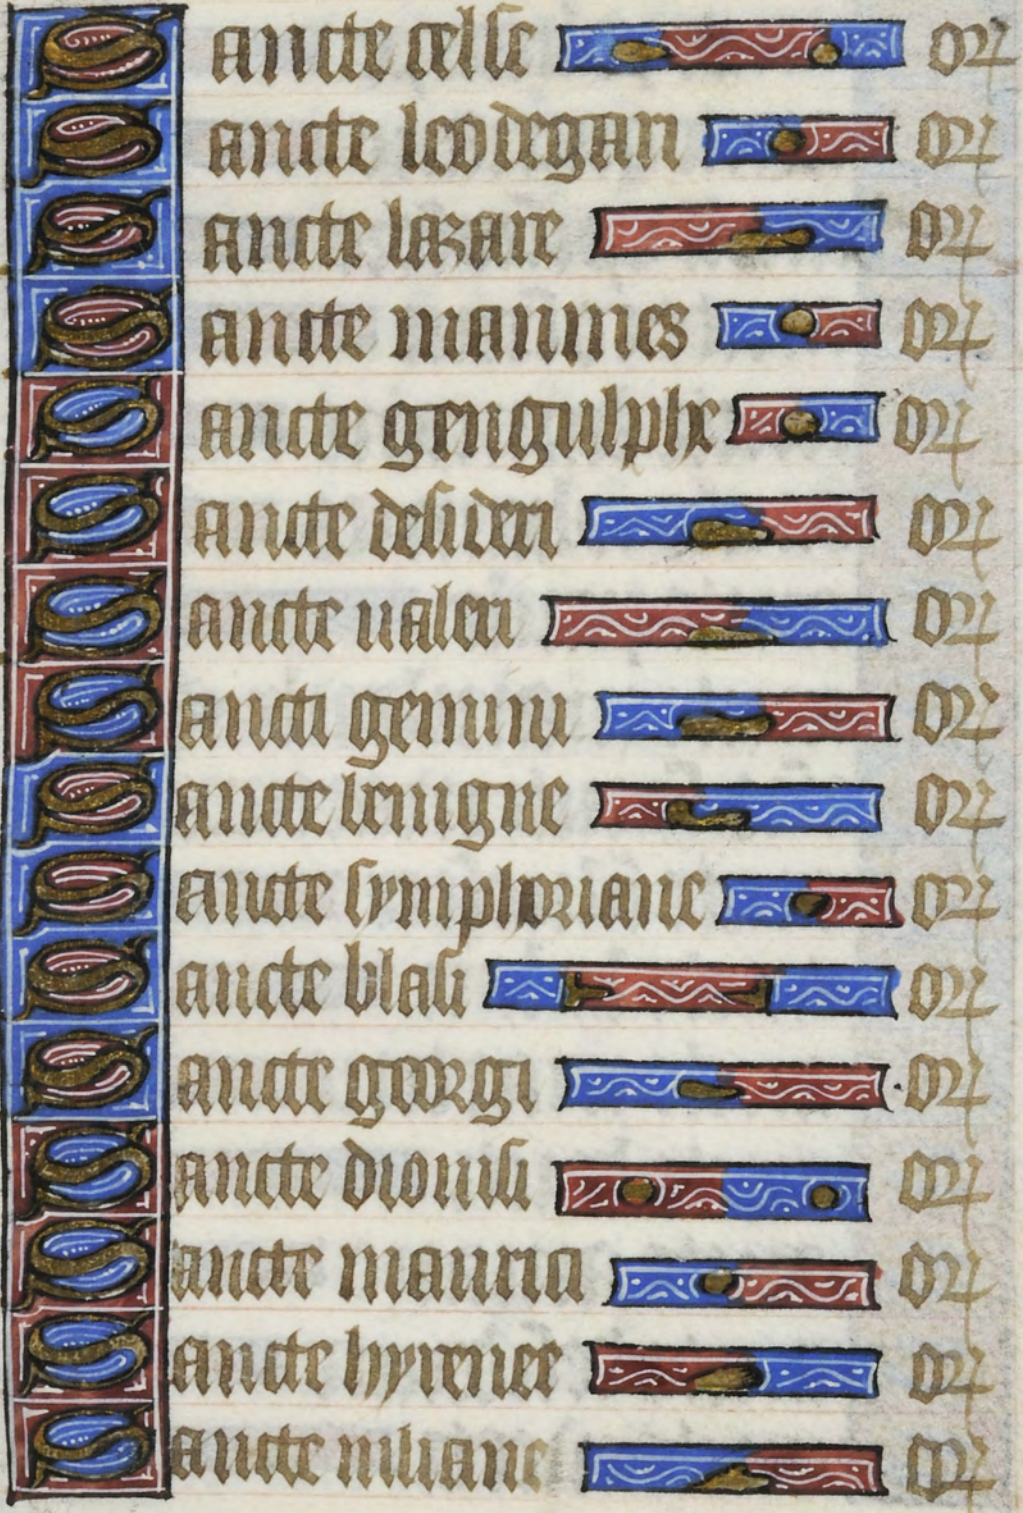 Sancte celse or
Sancte leodegari or
Sancte lazare or
Sancte mammes or
Sancte gengulphe or
Sancte desideri or
Sancte ualeri or
Sancti gemini or
Sancte benigne or
Sancte symphoriane or
Sancte blasi or
Sancte georgi or
Sancte dionisi or
Sancte maurici or
Sancte hyrenee or
Sancte iuliane or